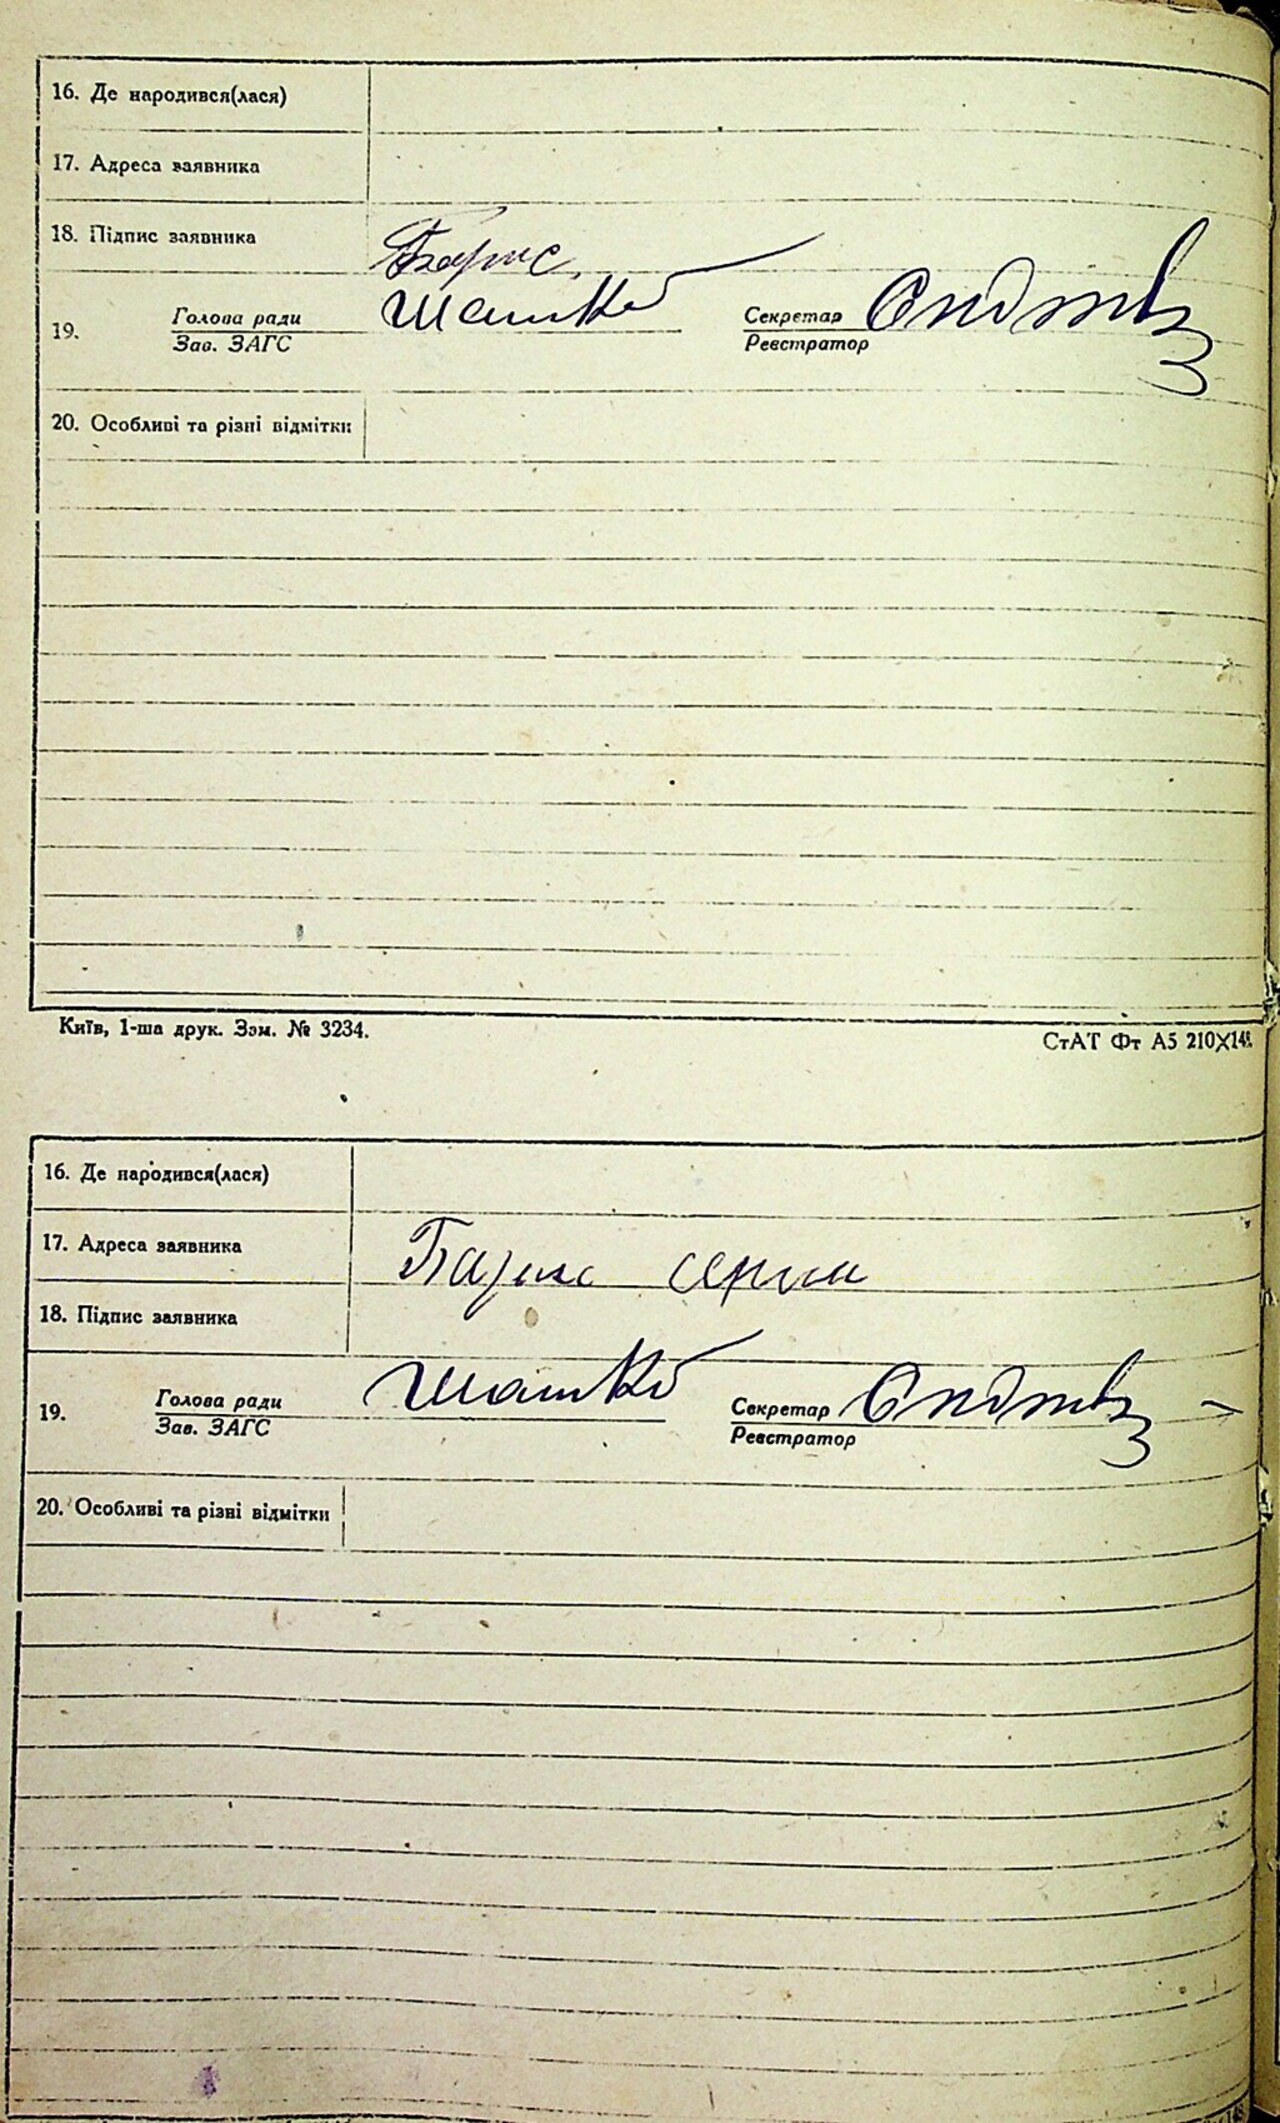 16. Де народився(лася)
17. Адреса заявника
18. Підпис заявника
Барис
19. Голова ради
Зав. ЗАГС
Шашко
Секретар
Реєстратор
20. Особливі та різні відмітки
Київ, 1-ша друк. Зам. № 3234.
СтАТ Фт А5 210×148.
16. Де народився(лася)
17. Адреса заявника
Барис
18. Підпис заявника
19. Голова ради
Зав. ЗАГС
Шашко
Секретар
Реєстратор
20. Особливі та різні відмітки